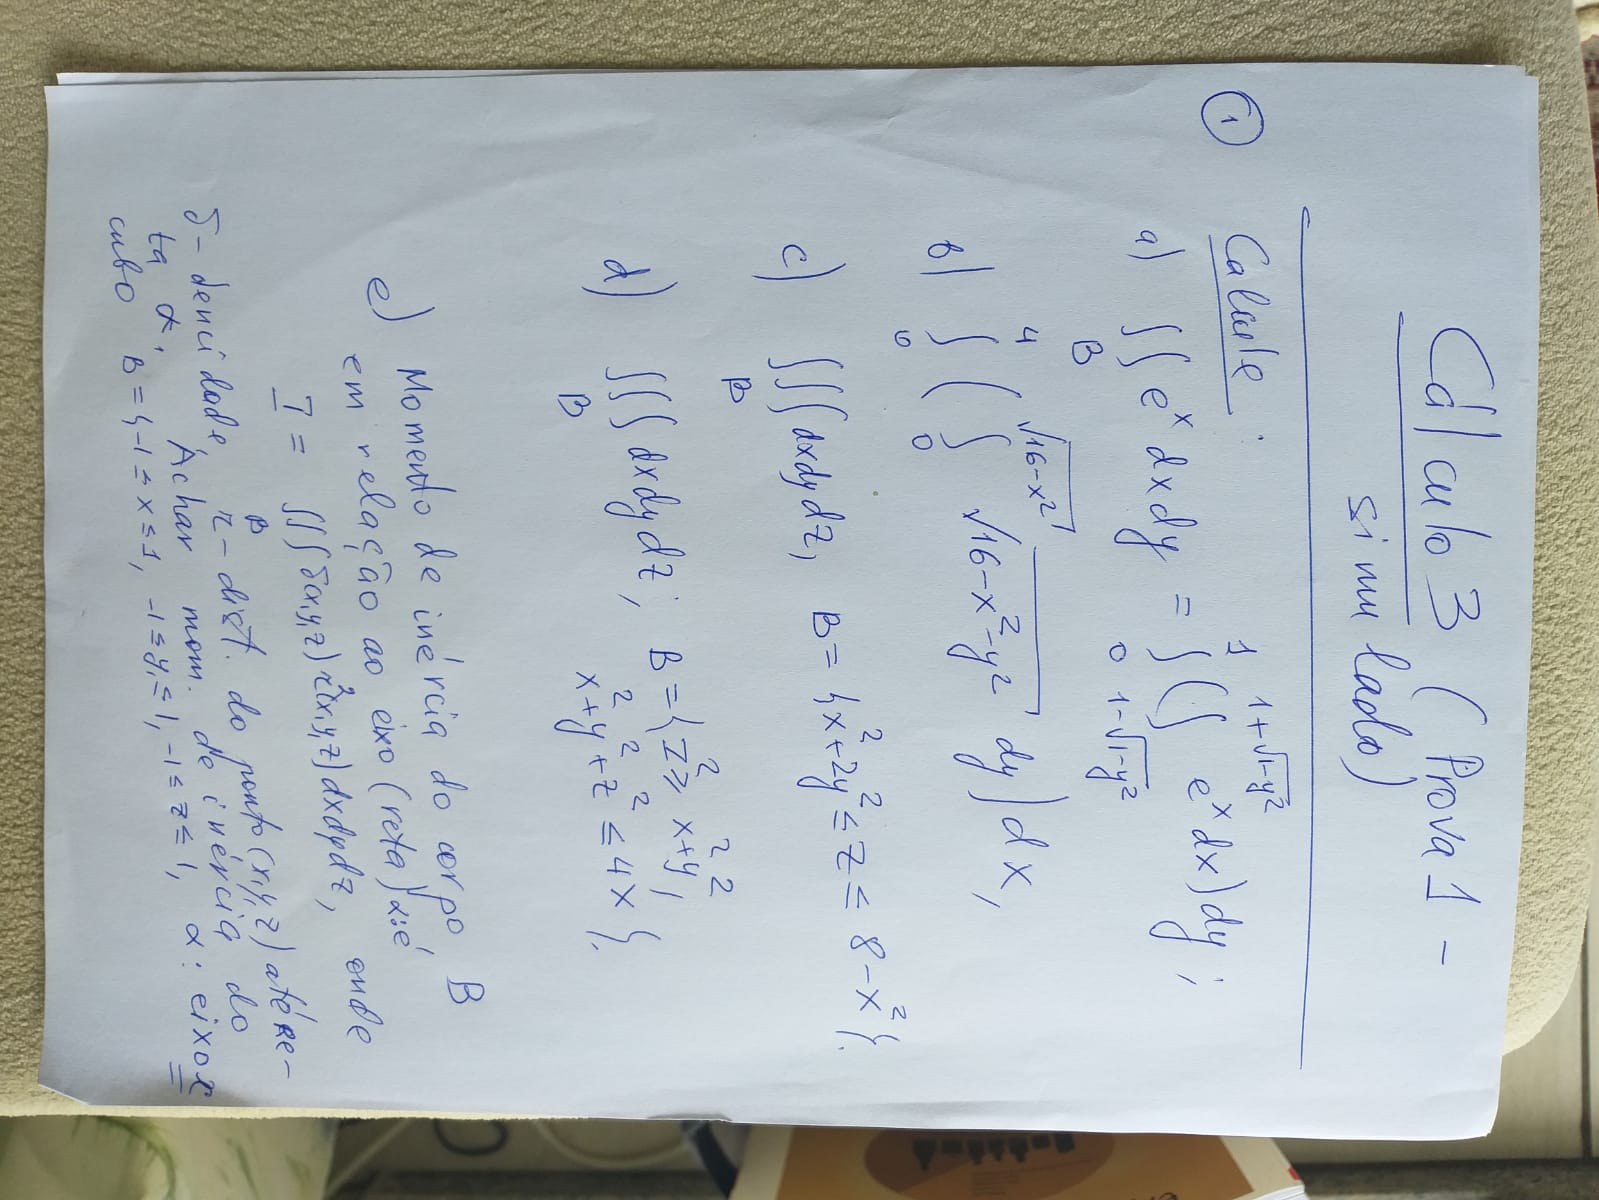 Cálculo 3 (Prova 1 -
simulado)
① Calcule:
a) ∫∫_B e^x dxdy = ∫_0^1 (∫_{1-√(1-y²)}^{1+√(1-y²)} e^x dx) dy;
b) ∫_0^4 (∫_0^{√(16-x²)} √(16-x²-y²) dy) dx,
c) ∫∫∫_B dxdydz, B = {x²+2y² ≤ z ≤ 8-x²}.
d) ∫∫∫_B dxdydz; B = {z² ≥ x²+y²,
x²+y²+z² ≤ 4x}.
e) Momento de inércia do corpo B
em relação ao eixo (reta) α: é
I = ∫∫∫_B δ(x,y,z) r²(x,y,z) dxdydz, onde
δ - dencidade, r - dist. do ponto (x,y,z) até re-
ta α. Achar mom. de inércia do
cubo B = {-1 ≤ x ≤ 1, -1 ≤ y ≤ 1, -1 ≤ z ≤ 1, α: eixo x